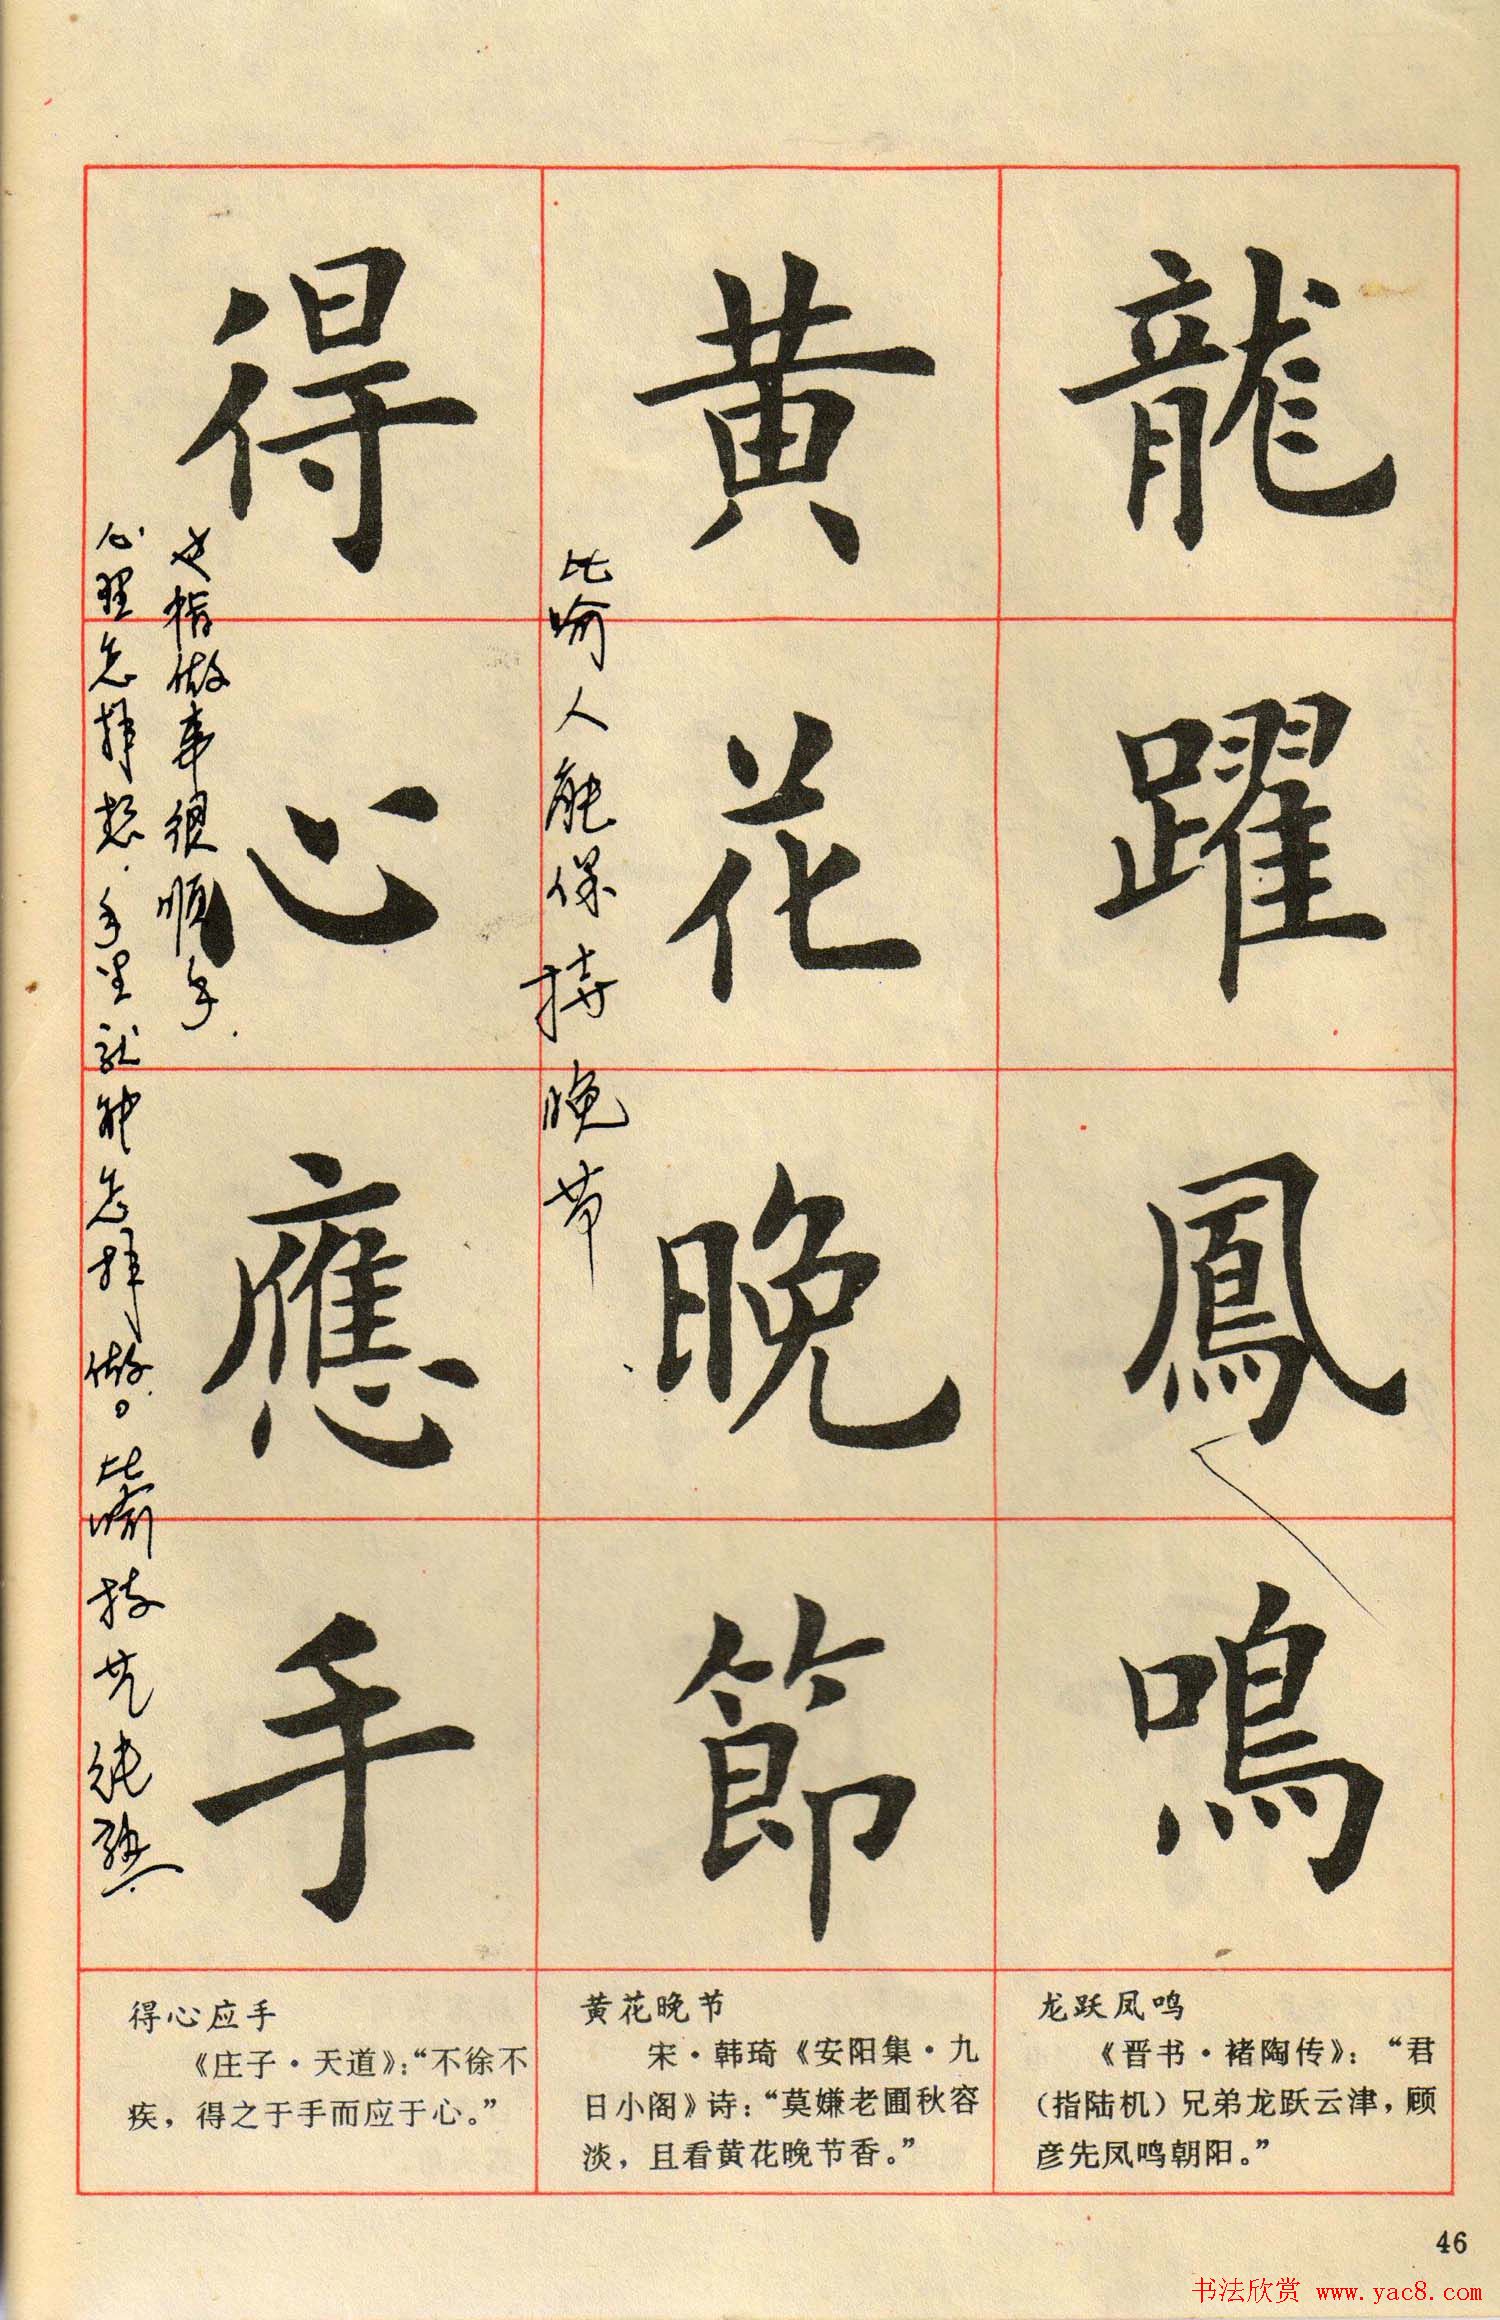 龍躍鳳鳴
黄花晚節
得心應手
比喻人能保持晚节
也指做事很顺手.
心理怎样想.手里就能怎样做。比喻技艺纯熟
龙跃凤鸣
《晋书·褚陶传》：“君
（指陆机）兄弟龙跃云津，顾
彦先凤鸣朝阳。”
黄花晚节
宋·韩琦《安阳集·九
日小阁》诗：“莫嫌老圃秋容
淡，且看黄花晚节香。”
得心应手
《庄子·天道》：“不徐不
疾，得之于手而应于心。”
46
书法欣赏 www.yac8.com